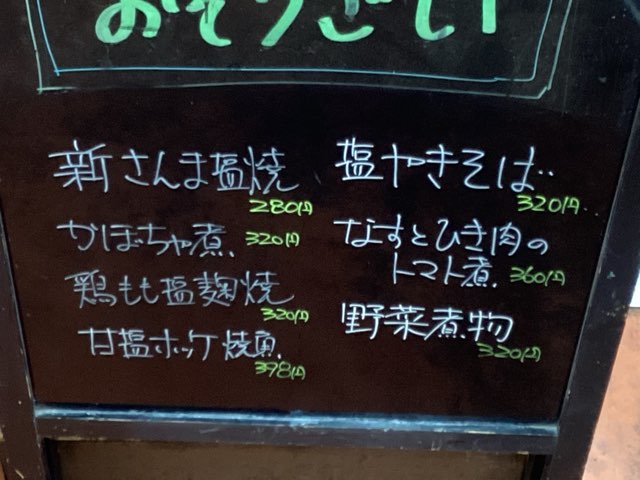 おそうざい
新さんま塩焼
280円
かぼちゃ煮 320円
鶏もも塩麹焼
320円
甘塩ホッケ焼魚
398円
塩やきそば
320円
なすとひき肉の
トマト煮 360円
野菜煮物
320円